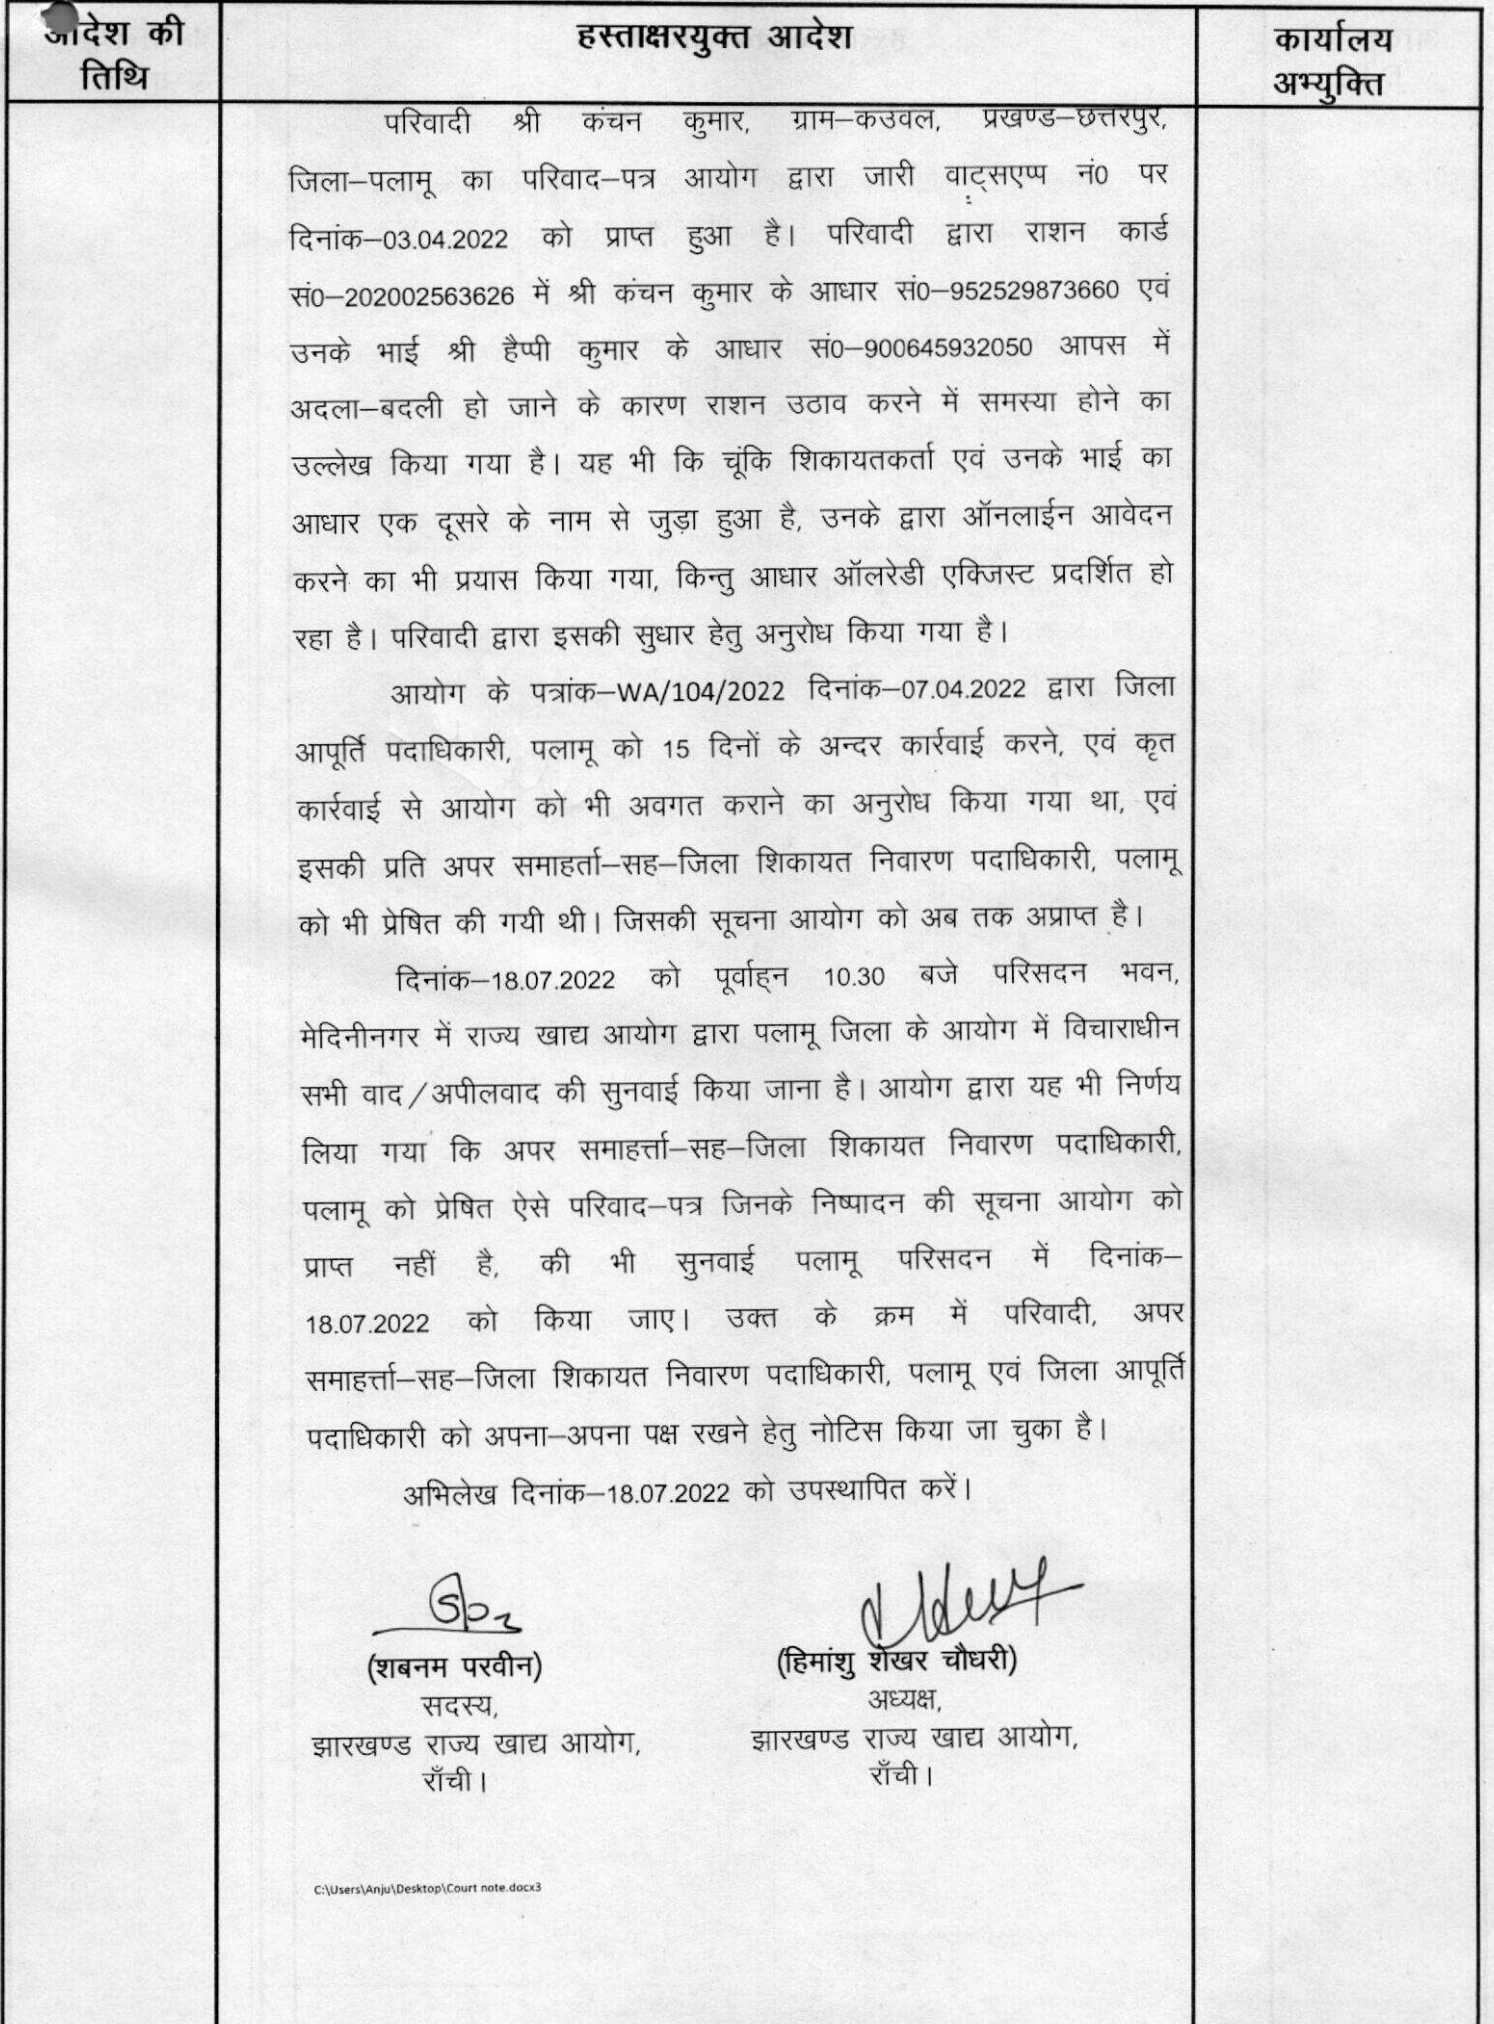 आदेश की
तिथि
हस्ताक्षरयुक्त आदेश
कार्यालय
अभ्युक्ति
परिवादी श्री कंचन कुमार, ग्राम–कउवल, प्रखण्ड–छत्तरपुर,
जिला–पलामू का परिवाद–पत्र आयोग द्वारा जारी वाट्सएप्प नं0 पर
दिनांक–03.04.2022 को प्राप्त हुआ है। परिवादी द्वारा राशन कार्ड
सं0–202002563626 में श्री कंचन कुमार के आधार सं0–952529873660 एवं
उनके भाई श्री हैप्पी कुमार के आधार सं0–900645932050 आपस में
अदला–बदली हो जाने के कारण राशन उठाव करने में समस्या होने का
उल्लेख किया गया है। यह भी कि चूंकि शिकायतकर्ता एवं उनके भाई का
आधार एक दूसरे के नाम से जुड़ा हुआ है, उनके द्वारा ऑनलाईन आवेदन
करने का भी प्रयास किया गया, किन्तु आधार ऑलरेडी एक्जिस्ट प्रदर्शित हो
रहा है। परिवादी द्वारा इसकी सुधार हेतु अनुरोध किया गया है।
आयोग के पत्रांक–WA/104/2022 दिनांक–07.04.2022 द्वारा जिला
आपूर्ति पदाधिकारी, पलामू को 15 दिनों के अन्दर कार्रवाई करने, एवं कृत
कार्रवाई से आयोग को भी अवगत कराने का अनुरोध किया गया था, एवं
इसकी प्रति अपर समाहर्ता–सह–जिला शिकायत निवारण पदाधिकारी, पलामू
को भी प्रेषित की गयी थी। जिसकी सूचना आयोग को अब तक अप्राप्त है।
दिनांक–18.07.2022 को पूर्वाह्न 10.30 बजे परिसदन भवन,
मेदिनीनगर में राज्य खाद्य आयोग द्वारा पलामू जिला के आयोग में विचाराधीन
सभी वाद/अपीलवाद की सुनवाई किया जाना है। आयोग द्वारा यह भी निर्णय
लिया गया कि अपर समाहर्त्ता–सह–जिला शिकायत निवारण पदाधिकारी,
पलामू को प्रेषित ऐसे परिवाद–पत्र जिनके निष्पादन की सूचना आयोग को
प्राप्त नहीं है, की भी सुनवाई पलामू परिसदन में दिनांक–
18.07.2022 को किया जाए। उक्त के क्रम में परिवादी, अपर
समाहर्त्ता–सह–जिला शिकायत निवारण पदाधिकारी, पलामू एवं जिला आपूर्ति
पदाधिकारी को अपना–अपना पक्ष रखने हेतु नोटिस किया जा चुका है।
अभिलेख दिनांक–18.07.2022 को उपस्थापित करें।
(शबनम परवीन)
सदस्य,
झारखण्ड राज्य खाद्य आयोग,
राँची।
(हिमांशु शेखर चौधरी)
अध्यक्ष,
झारखण्ड राज्य खाद्य आयोग,
राँची।
C:\Users\Anju\Desktop\Court note.docx3